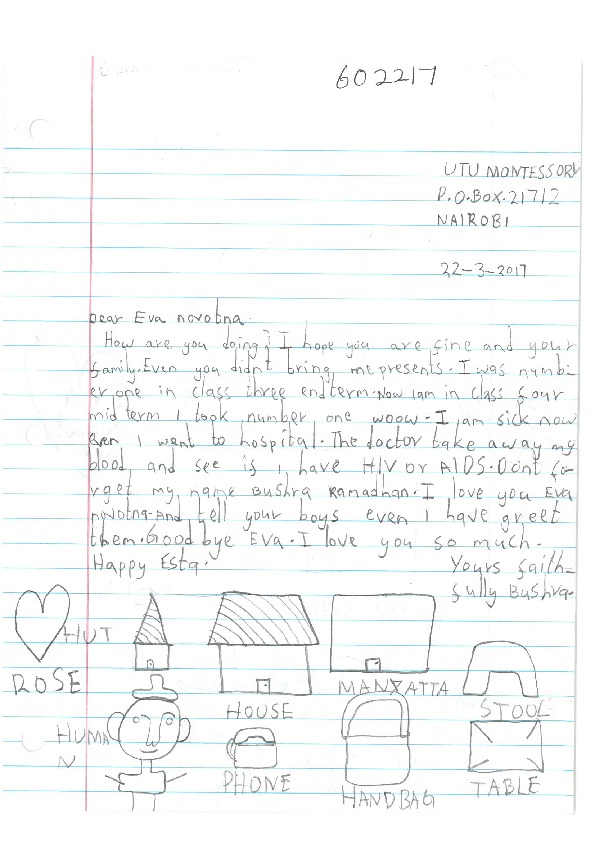 602217
UTU MONTESSORY
P.O.BOX.21712
NAIROBI
22-3-2017
Dear Eva novotna.
How are you doing? I hope you are fine and your
family.Even you didn't bring me presents.I was numb-
er one in class three endterm.Now iam in class four
mid term I took number one woow.I am sick now
even I went to hospital.The doctor take away my
blood and see if I have HIV or AIDS.Dont fo-
rget my name Bushra Ramadhan.I love you Eva
Novotna.And tell your boys even I have greet
them.Good bye Eva.I love you so much.
Happy Esta.
Yours faith-
fully Bushra.
HUT
ROSE
HOUSE
MANYATTA
STOOL
HUMA
N
PHONE
HANDBAG
TABLE